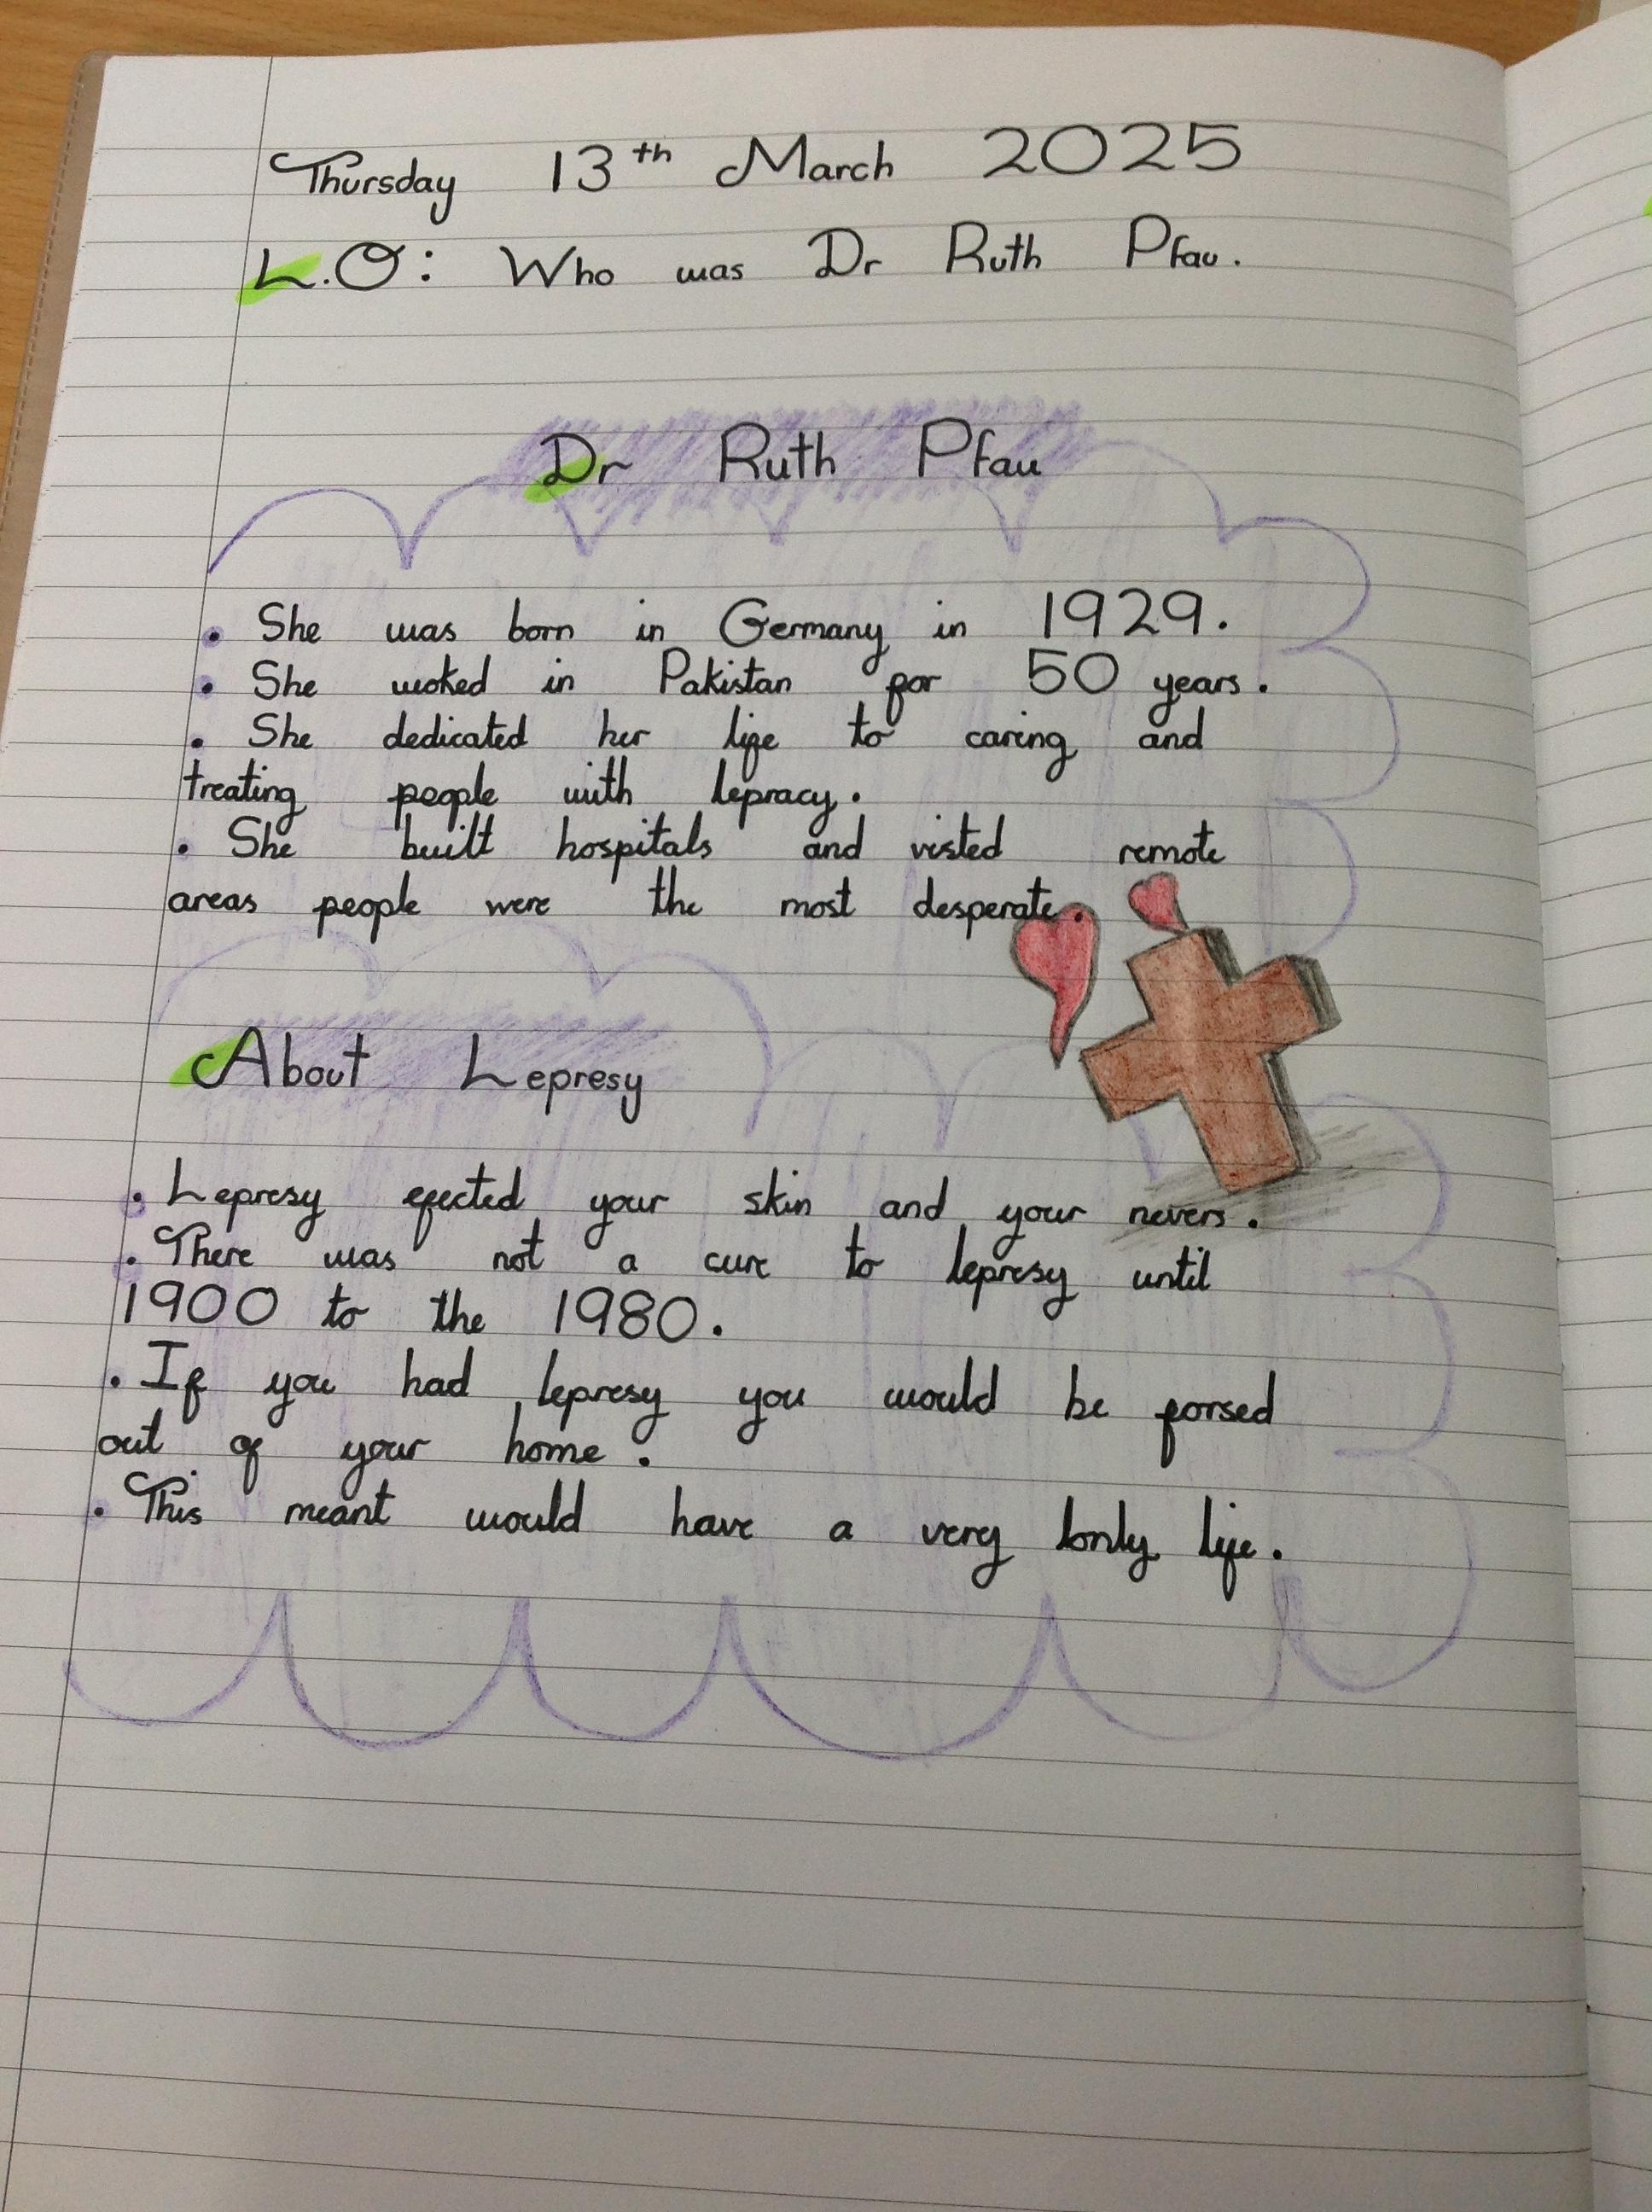 Thursday 13th March 2025
L.O: Who was Dr Ruth Pfau.
Dr Ruth Pfau
• She was born in Germany in 1929.
• She woked in Pakistan for 50 years.
• She dedicated her life to caring and
treating people with lepracy.
• She built hospitals and visted remote
areas people were the most desperate.
About Lepresy
• Lepresy efected your skin and your nevers.
• There was not a cure to lepresy until
1900 to the 1980.
• If you had lepresy you would be forsed
out of your home.
• This meant would have a very lonly life.